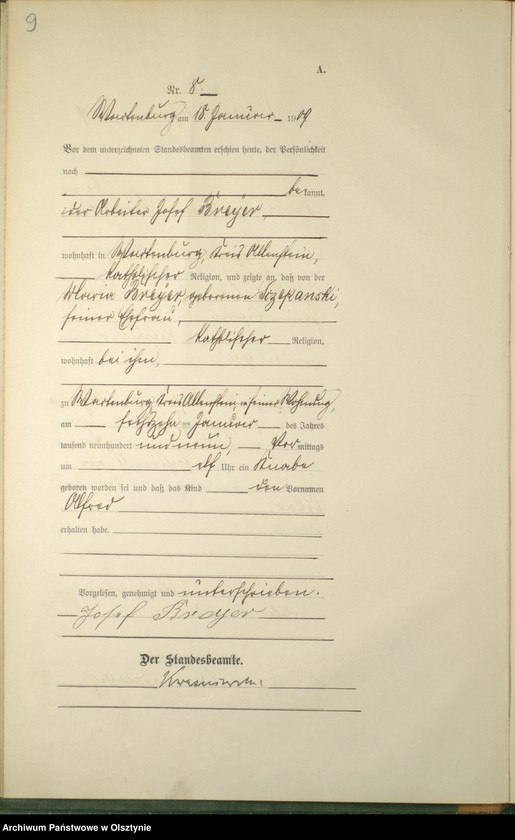 9
A.
Nr. 8.
Wartenburg am 18. Januar 1909
Vor dem unterzeichneten Standesbeamten erschien heute, der Persönlichkeit
nach
bekannt,
der Arbeiter Josef Breyer,
wohnhaft in Wartenburg, Kreis Allenstein,
katholischer Religion, und zeigte an, daß von der
Maria Breyer, geborenen Szepanski,
seiner Ehefrau,
katholischer Religion,
wohnhaft bei ihm,
zu Wartenburg Kreis Allenstein, in seiner Wohnung,
am sechszehn Januar des Jahres
tausend neunhundert und neun, Vormittags
um elf Uhr ein Knabe
geboren worden sei und daß das Kind den Vornamen
Alfred
erhalten habe.
Vorgelesen, genehmigt und unterschrieben.
Josef Breyer
Der Standesbeamte.
Archiwum Państwowe w Olsztynie